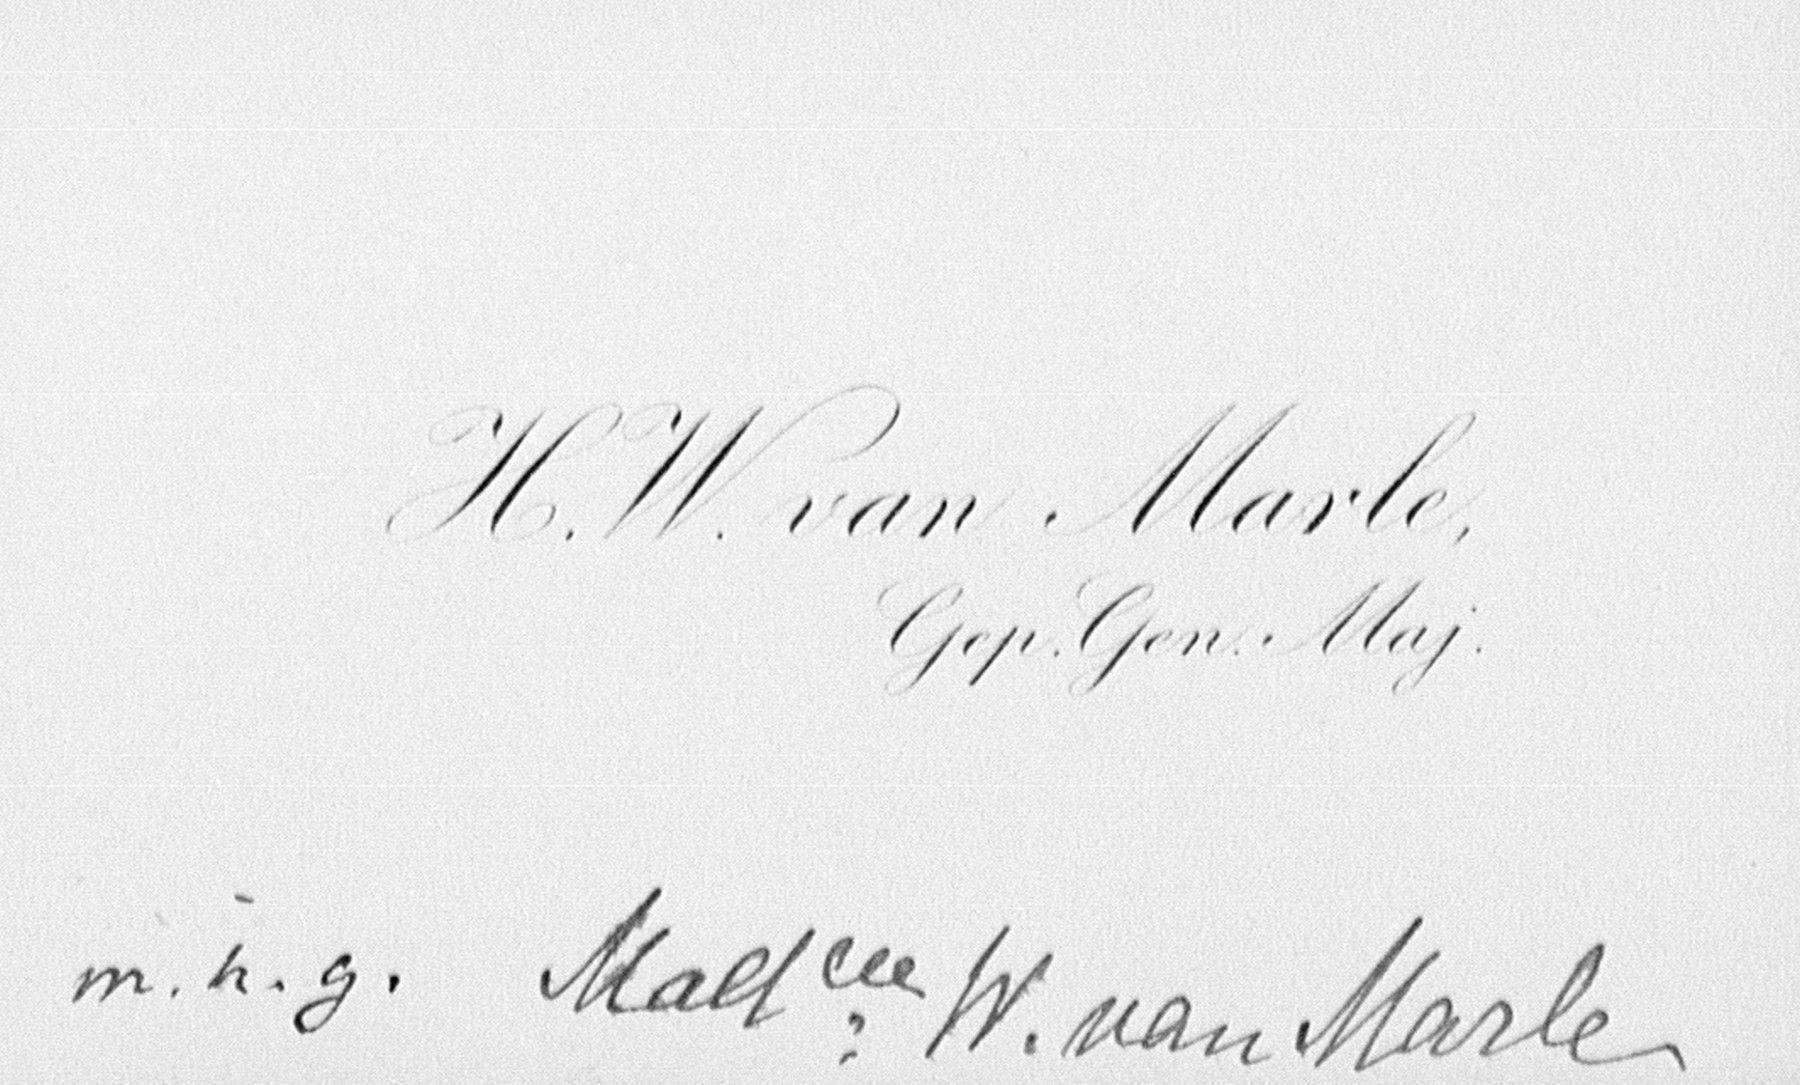 H. W. van Marle,
Gep. Gen. Maj.
m. h. g. W. van Marle